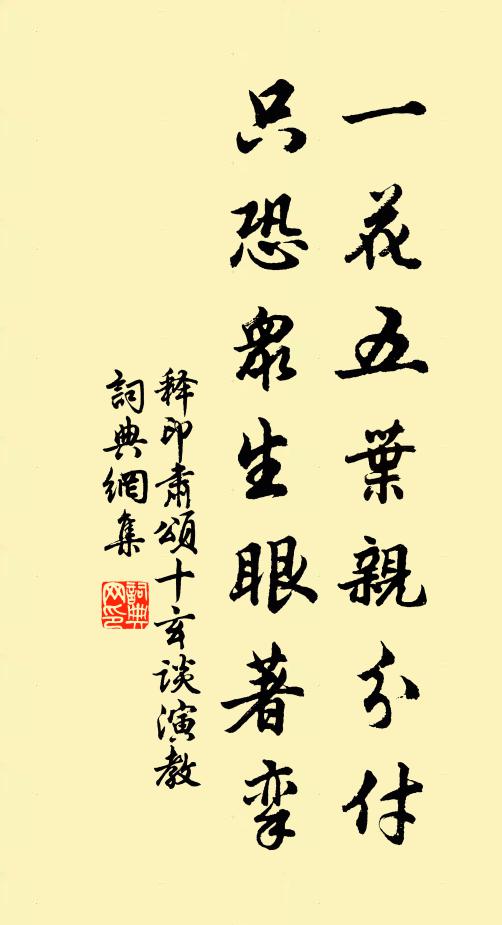 一花五葉親分付
只恐眾生眼著孿
释印肃頌十玄談演教
詞典網集
詞典网印